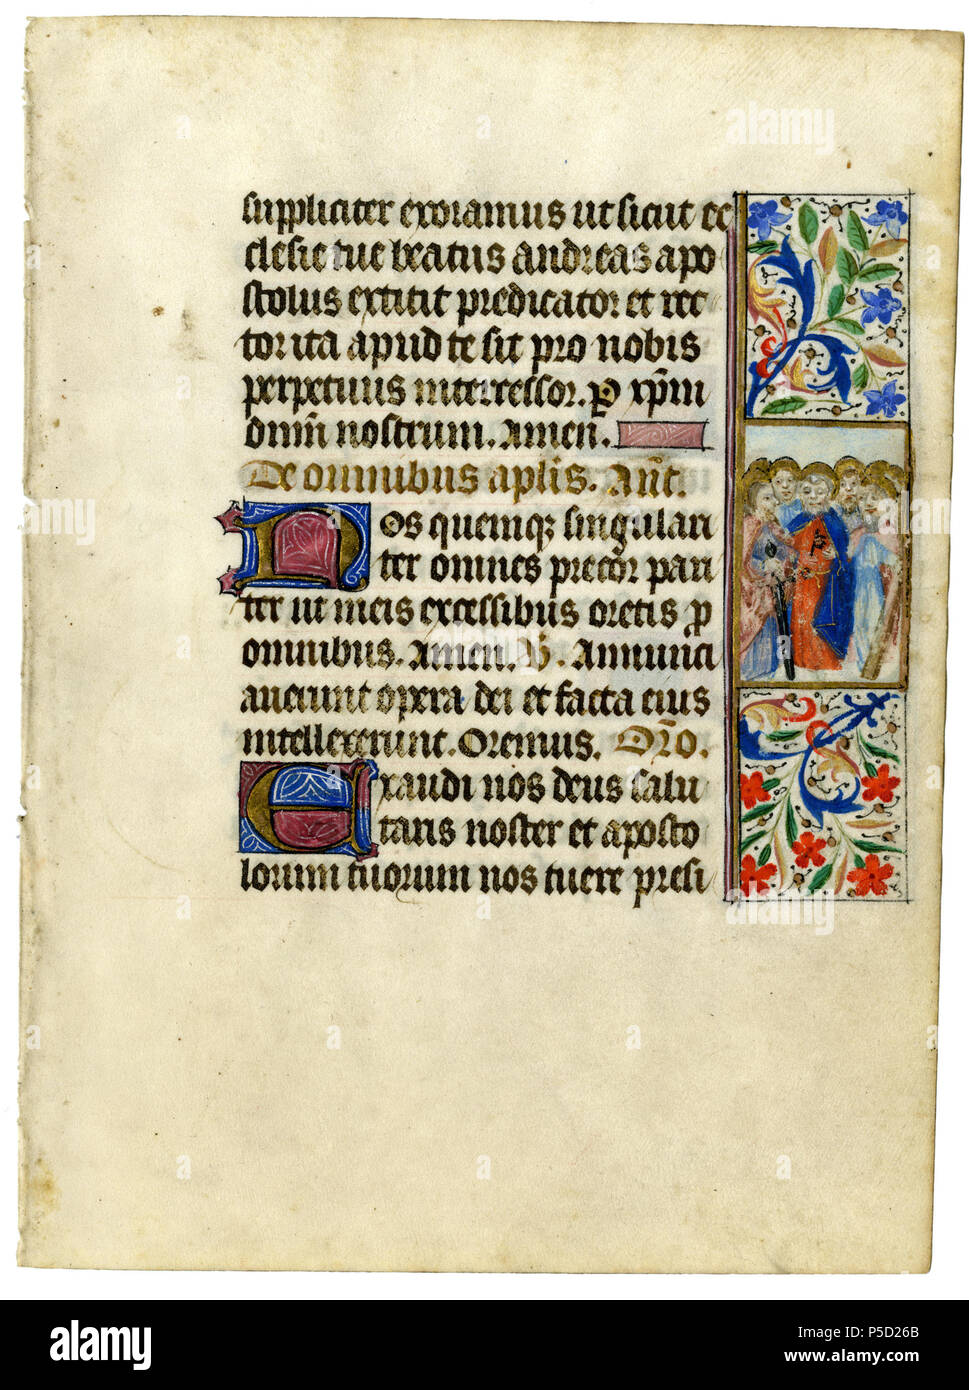 suppliciter exoramus ut sicut ec
clesie tue beatus andreas apo
stolus extitit predicator et rec
tor ita apud te sit pro nobis
perpetuus intercessor. p xpm
dnm nostrum. Amen.
De omnibus aplis. Ant.
Nos quemq; singulari
ter omnes precor pari
ter ut meis excessibus oretis p
omnibus. Amen. V. Annunci
averunt opera dei et facta eius
intellexerunt. Oremus. Oro.
Exaudi nos deus salu
taris noster et aposto
lorum tuorum nos tuere presi
alamy
alamy
a
a
a
alamy
Image ID: P5D26B
www.alamy.com